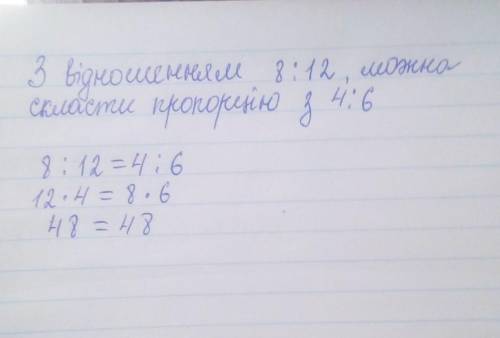 З відношенням 8:12, можна
скласти пропорцію з 4:6
8:12=4:6
12·4=8·6
48=48